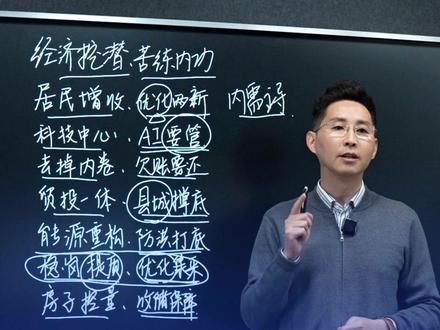 经济挖潜 苦练内功
居民增收、优化两新 内需
科技中心、AI要管
去掉内卷、欠账要还
负投一体、县城撑底
能源重构、防洪打底
稳岗 优化
房子控量、收储保障